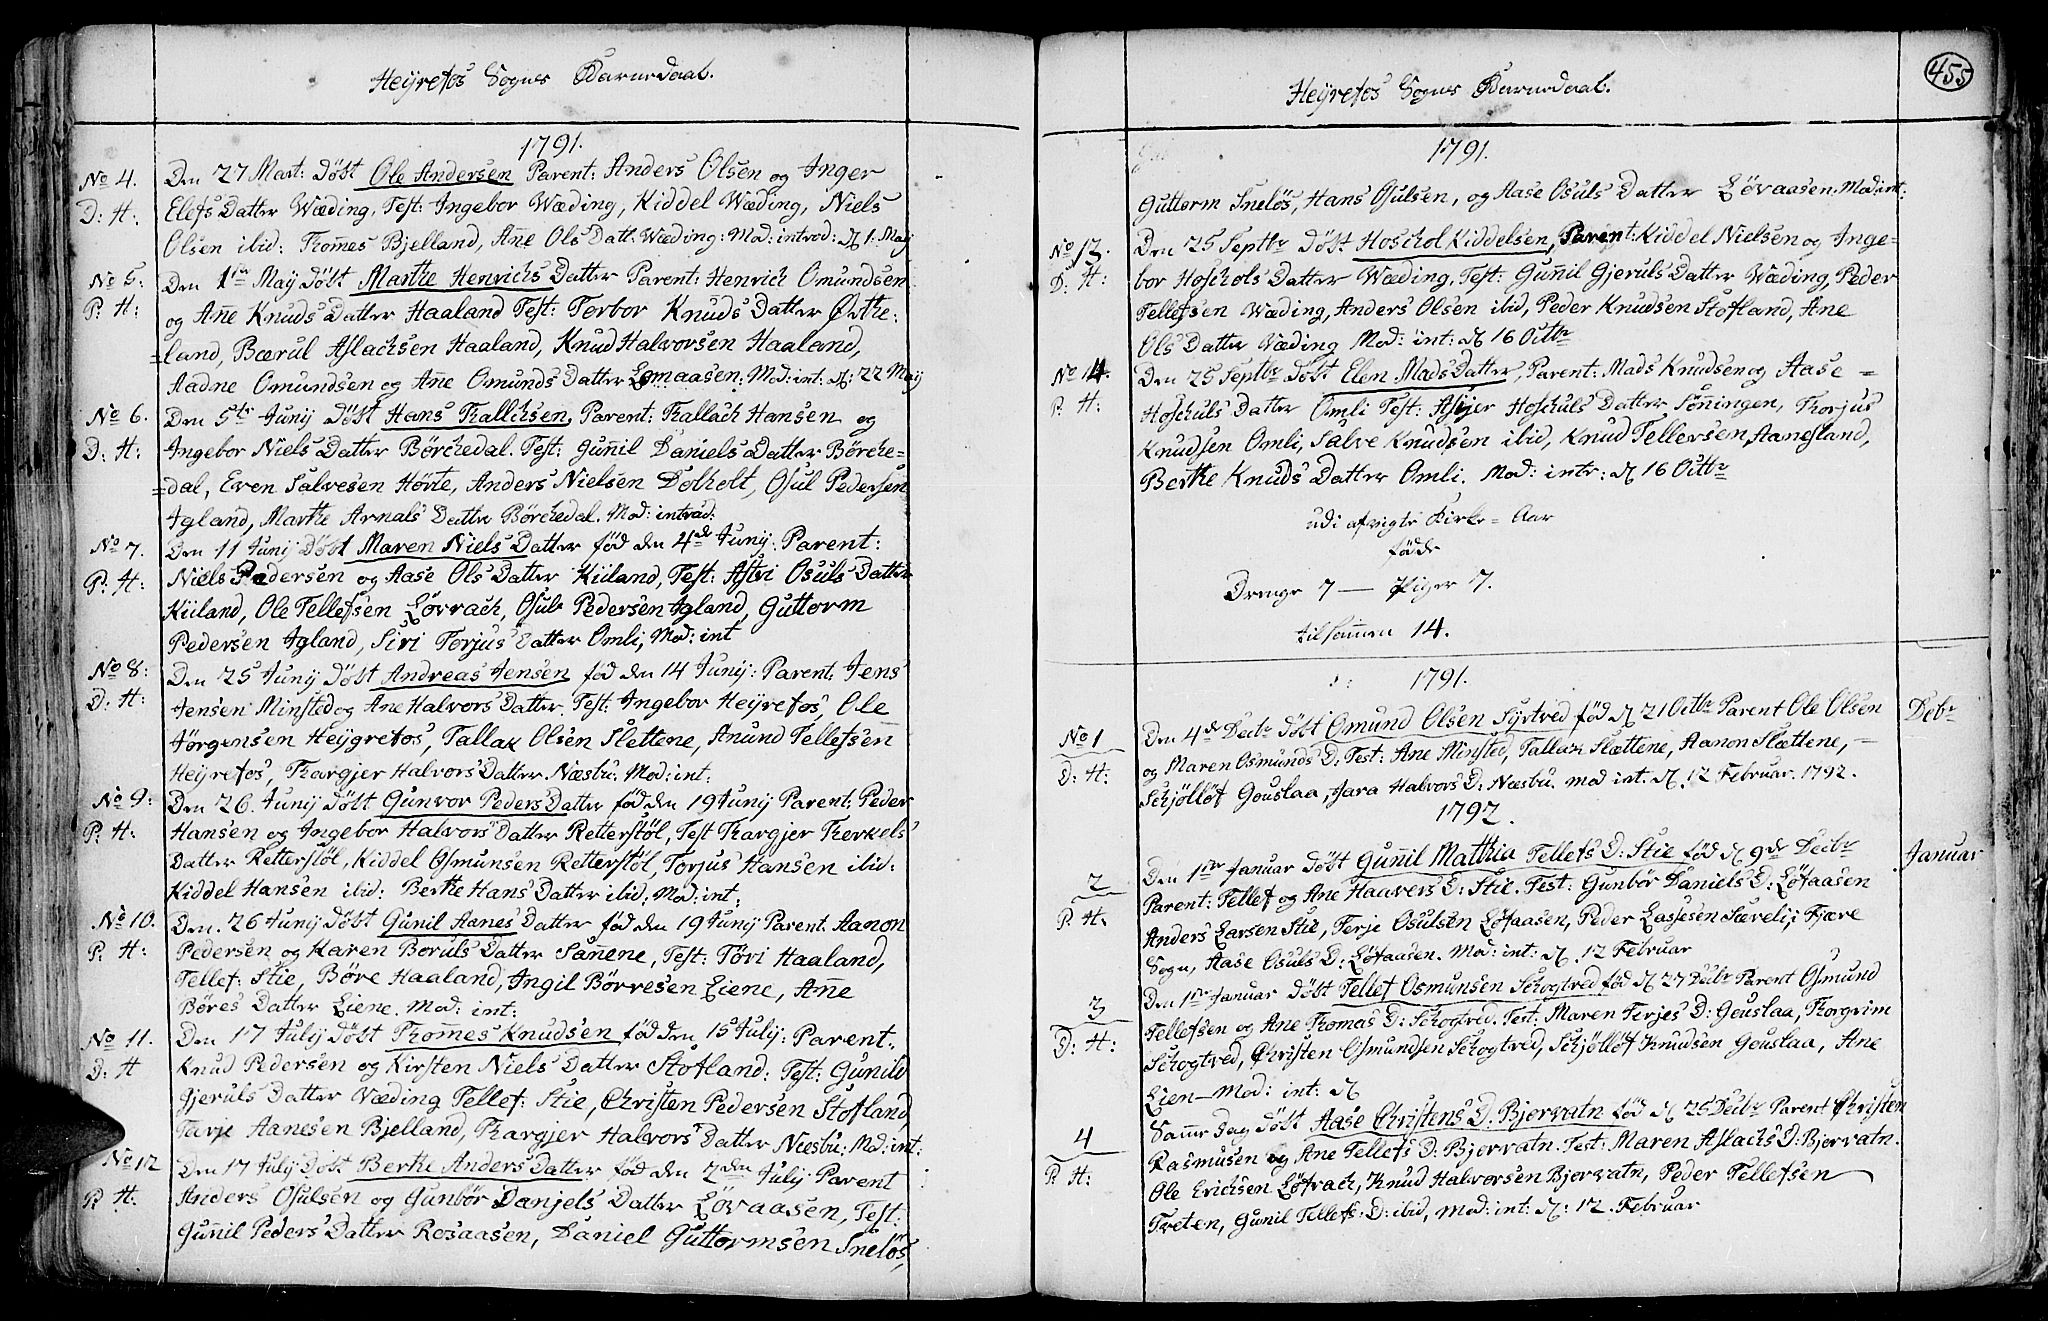 Heyrefos Sogns Barnedaab.
1791.
No 4. Den 27 Mart: døbt Ole Andersen Parent: Anders Olsen og Inger
D: H: Elefs Datter Wæding, Test: Ingebor Wæding, Kiddel Wæding, Niels
Olsen ibid: Thomes Bjelland, Ane Ols Datt: Wæding: Mod: introd: d 1: May
No 5: Den 1te May døbt Marthe Henrichs Datter Parent: Henrich Omundsen
P: H: og Ane Knuds Datter Haaland Test: Torbor Knuds Datter Ørthe:
=land, Bærul Aslachsen Haaland, Knud Halvorsen Haaland,
Aadne Omundsen og Ane Omunds Datter Lømaasen: Mod: int: d: 22 May
No 6. Den 5te Junij døbt Hans Thallchsen, Parent: Thallach Hansen og
D: H: Ingebor Niels Datter Børchedal. Test: Gunnil Daniels Datter Børche-
=dal, Even Salvesen Hørte, Anders Nielsen Dølholt, Osul Pedersen
Igland, Marthe Arnals Datter Børchedal. Mod: introd:
No 7. Den 11 Junij Døbt Maren Niels Datter fød den 4de Junij: Parent:
P: H: Niels Pedersen og Aase Ols Datter Kiiland, Test: Astri Osuls Datter
Kiiland, Ole Tellefsen Løvrach, Osul Pedersen Igland, Guttorm
Pedersen Igland, Siri Torjus Datter Omli, Mod: int
No 8: Den 25 Junij døbt Andreas Jensen fød den 14 Junij: Parent: Jens
D: H: Jensen Minsted og Ane Halvors Datter. Test: Ingebor Heyrefos, Ole
Jørgensen Heygrefos, Tallak Olsen Slettene, Anund Tellefsen
Heyrefos, Thargjer Halvors Datter Næsbu: Mod: int:
No 9: Den 26. Junij døbt Gunvor Peders Datter fød den 19 Junij Parent: Peder
P: H: Hansen og Ingebor Halvors Datter Retterstøl, Test Thargjer Therkels
Datter Retterstøl, Kiddel Osmunsen Retterstøl, Torjus Hansen ibid:
Kiddel Hansen ibid: Berthe Hans Datter ibid, Mod: int:
No 10. Den. 26 Junij døbt Gunil Aanes Datter fød den 19 Junij Parent: Aanon
P: H: Pedersen og Karen Boruls Datter Sannene, Test: Tøri Haaland,
Tellef: Stie, Børe Haaland, Ingil Børresen Liene, Ane
Børes Datter Liene. Mod: int:
No 11. Den 17 Julij døbt Thomes Knudsen fød den 15 Julij: Parent:
D: H Knud Pedersen og Kirsten Niels Datter Stofland: Test: Gunild
Gjeruls Datter Væding Tellef: Stie, Christen Pedersen Stofland,
Terje Aanesen Bjelland, Thargjer Halvors Datter Næsbu: Mod: int:
No 12 Den 17 Julij døbt Berthe Anders Datter fød den 2den Julij: Parent
P: H: Anders Osulsen og Gunbør Danjels Datter Løvaasen, Test:
Gunnil Peders Datter Rosaasen, Daniel Guttormsen Sneløs
Heyrefos Sogns Barnedaab.
455
1791.
Guttorm Sneløs, Hans Osulsen, og Aase Osuls Datter Løvaasen. Mod: int:
No 13. Den 25 Septbr døbt Hoschol Kiddelsen, Parent: Kiddel Nielsen og Inge-
D: H: bor Hoschols Datter Wæding, Test: Gunnil Gjeruls Datter Wæding, Peder
Tellefsen Wæding, Anders Olsen ibid, Peder Knudsen Stofland, Ane
Ols Datter Væding Mod: int: d 16 Octbr
No 14. Den 25 Septbr døbt Elen Mads Datter, Parent: Mads Knudsen og Aase =
P: H: Hoschuls Datter Omli Test: Asjer Hoschuls Datter Sønningen, Thorjus
Knudsen Omli, Salve Knudsen ibid, Knud Tellersen Aanesland,
Berthe Knuds Datter Omli. Mod: intr: d 16 Octbr
udi afvigte Kirke = Aar
fødde
Drenge 7 — Piger 7.
tilsammen 14.
1791.
No 1 Den 4de Decbr døbt Omund Olsen Syrtved fød d 21 Octbr Parent Ole Olsen Debr
D: H: og Maren Osmunds D: Test: Ane Minsted, Tallak Slættene, Aanon Slættene, —
Schjølløf Gouslaa, Jara Halvors D: Næsbu. mod int. d. 12 Februar. 1792.
1792.
2 Den 1ste Januar døbt Gunnil Mathia Tellefs D: Stie fød d 9de Decbr Januar
P. H. Parent: Tellef og Ane Haavers D: Stie. Test: Gunbør Daniels D: Løfaasen
Anders Larsen Stie, Terje Osulsen Løfaasen, Peder Lassesen Særeli, Fjære
Sogn, Aase Osuls D: Løfaasen. Mod: int: d. 12 Februar
3 Den 1ste Januar døbt Tellef Osmunsen Schogtved fød d 27 Decbr Parent Osmund
D: H: Tellefsen og Ane Thomas D: Schogtved. Test: Maren Terjes D: Gouslaa, Thorgrim
Schogtved, Christen Osmundsen Schogtved, Schjølløf Knudsen Gouslaa, Ane
Lien — Mod: int: d
4 Samme dag døbt Aase Christens D: Bjorvatn fød d 25 Decbr Parent Christen
P: H: Rasmusen og Ane Tellefs D: Bjorvatn. Test: Maren Aslachs D: Bjorvatn.
Ole Erichsen Løfrach, Knud Halvorsen Bjorvatn, Peder Tellefsen
Treten, Gunil Tellefs: D: ibid, Mod: int: d: 12. Februar